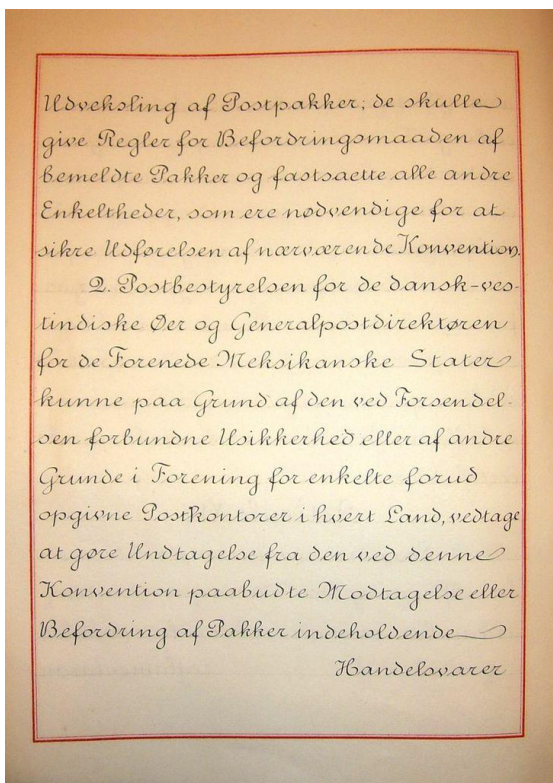 Udveksling af Postpakker; de skulle
give Regler for Befordringsmaaden af
bemeldte Pakker og fastsaette alle andre
Enkeltheder, som ere nødvendige for at
sikre Udførelsen af nærværende Konvention.
2. Postbestyrelsen for de dansk-ves-
tindiske Øer og Generalpostdirektøren
for de Forenede Meksikanske Stater
kunne paa Grund af den ved Forsendel-
sen forbundne Usikkerhed eller af andre
Grunde i Forening for enkelte forud
opgivne Postkontorer i hvert Land, vedtage
at gøre Undtagelse fra den ved denne
Konvention paabudte Modtagelse eller
Befordring af Pakker indeholdende
Handelsvarer